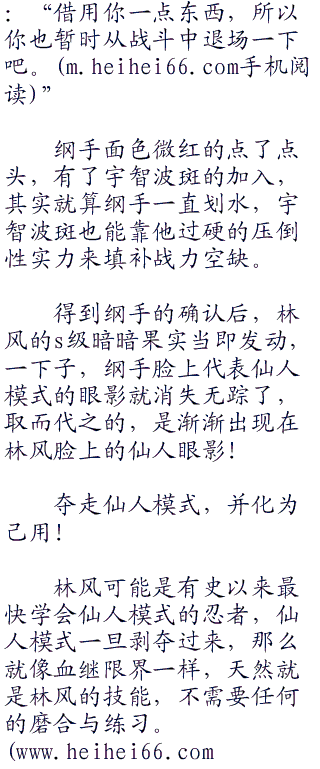 ：“借用你一点东西，所以
你也暂时从战斗中退场一下
吧。(m.heihei66.com手机阅
读)”
纲手面色微红的点了点
头，有了宇智波斑的加入，
其实就算纲手一直划水，宇
智波斑也能靠他过硬的压倒
性实力来填补战力空缺。
得到纲手的确认后，林
风的s级暗暗果实当即发动，
一下子，纲手脸上代表仙人
模式的眼影就消失无踪了，
取而代之的，是渐渐出现在
林风脸上的仙人眼影！
夺走仙人模式，并化为
己用！
林风可能是有史以来最
快学会仙人模式的忍者，仙
人模式一旦剥夺过来，那么
就像血继限界一样，天然就
是林风的技能，不需要任何
的磨合与练习。
(www.heihei66.com